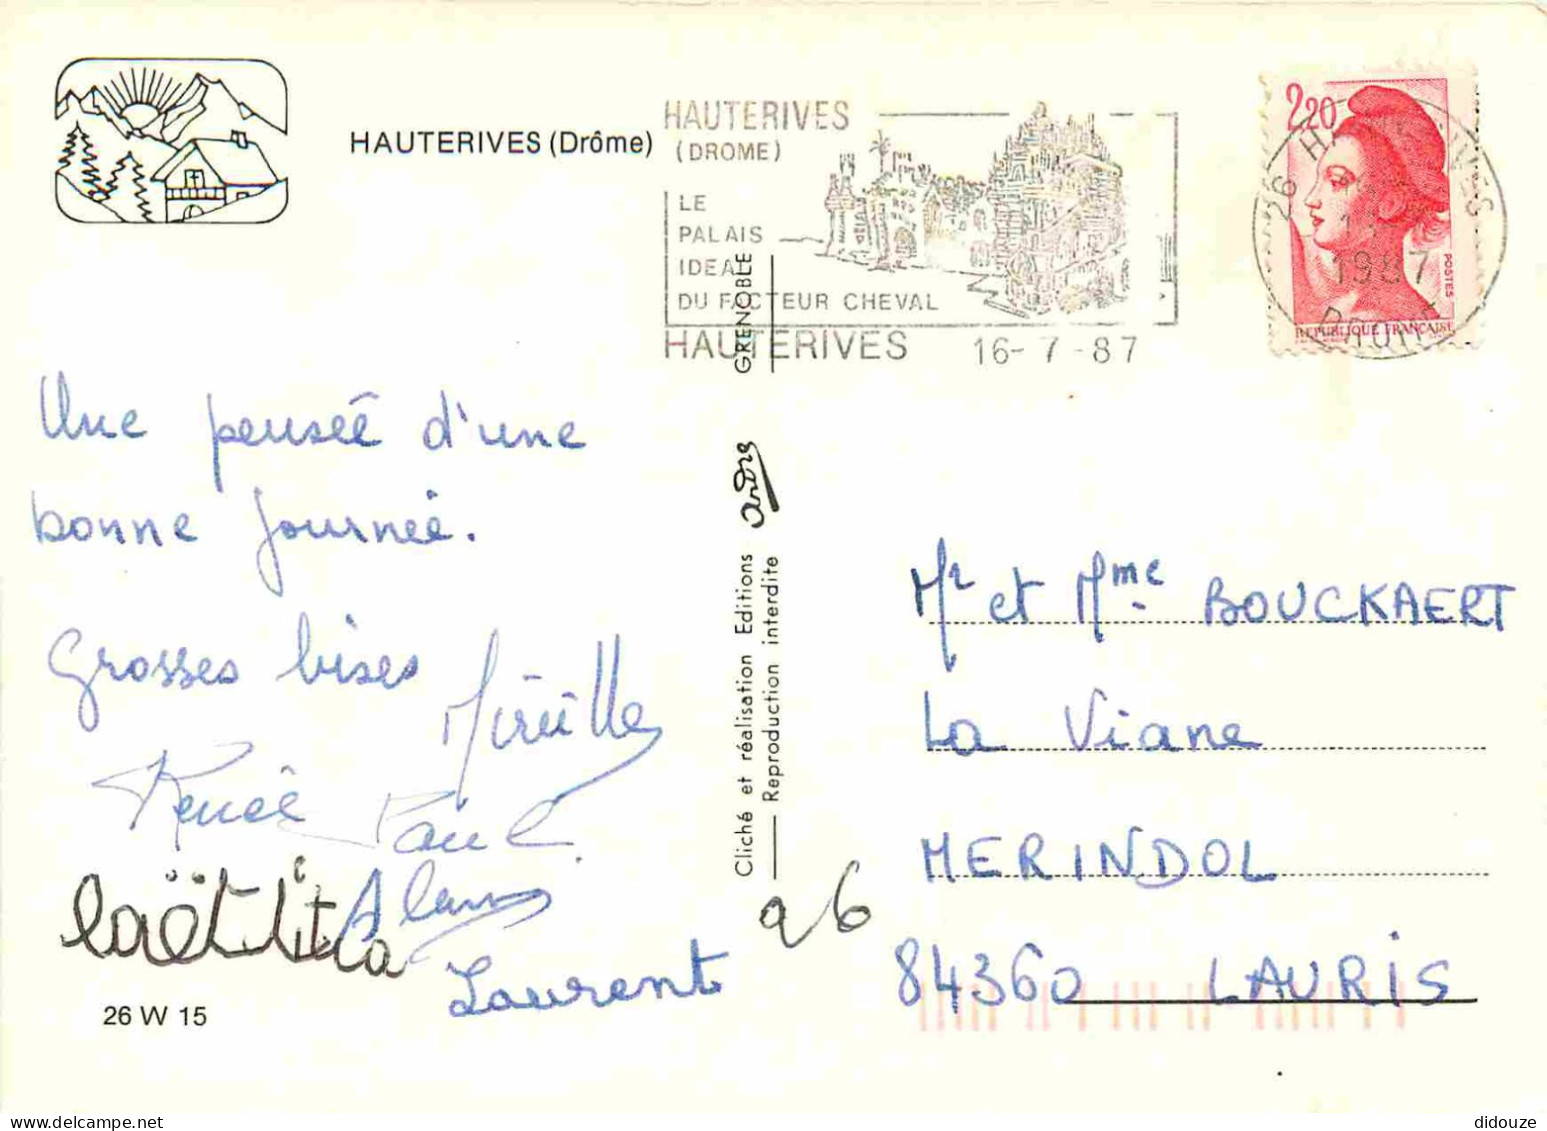 HAUTERIVES (Drôme)
HAUTERIVES
(DROME)
LE
PALAIS
IDEAL
DU FACTEUR CHEVAL
HAUTERIVES 16-7-87
2,20
POSTES
REPUBLIQUE FRANÇAISE
26
1987
DROME
Une pensée d'une
bonne journée.
Grosses bises
Mireille
Renée Paul
Alain
laëtitia
Laurent
26 W 15
GRENOBLE
André
Cliché et réalisation Editions
Reproduction interdite
26
Mr et Mme BOUCKAERT
La Viane
MERINDOL
84360 LAURIS
didouze